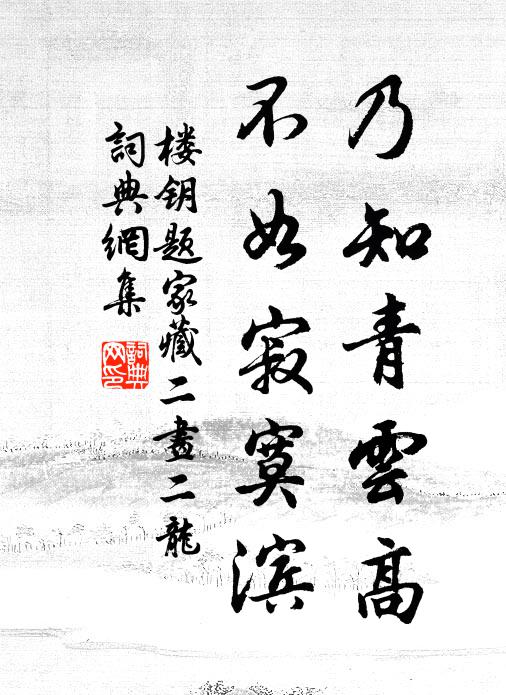 乃知青雲高
不如寂寞滨
楼钥题家藏二畫二龍
詞典網集
詞典
网印